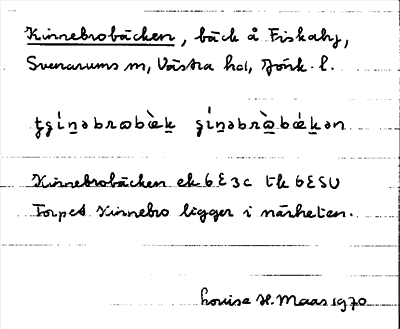 Kinnebrobäcken, bäck å Fiskaby,
Svenarums sn, Västra hd, Jönk. l.
Kinnebrobäcken ek 6E3c tk 6ESU
Torpet Kinnebro ligger i närheten.
Louise H. Maas 1970